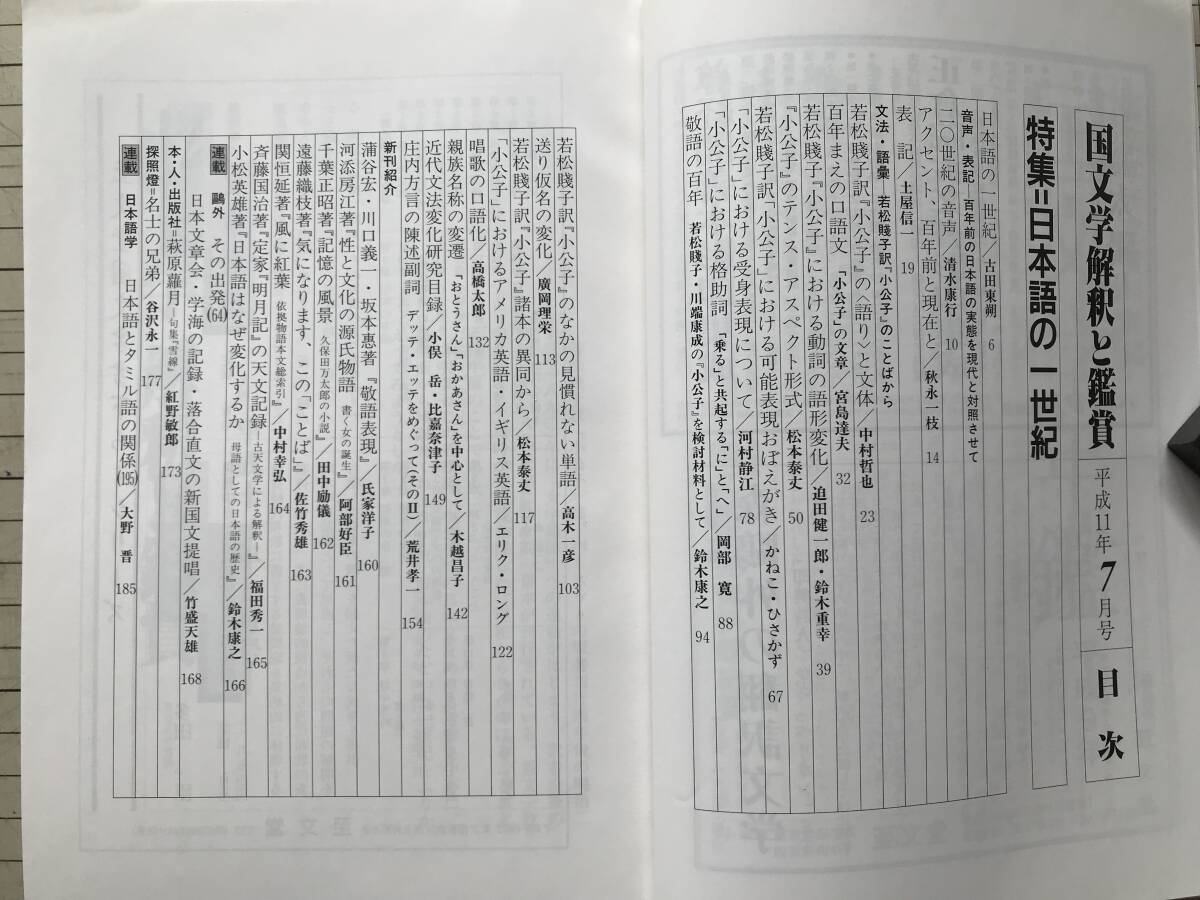 国文学解釈と鑑賞 平成11年7月号 目次
特集=日本語の一世紀
日本語の一世紀/古田東朔 6
音声・表記 百年前の日本語の実態を現代と対照させて
二〇世紀の音声/清水康行 10
アクセント、百年前と現在と/秋永一枝 14
表記/土屋信一 19
文法・語彙―若松賤子訳『小公子』のことばから
若松賤子訳『小公子』の〈語り〉と文体/中村哲也 23
百年まえの口語文 「小公子」の文章/宮島達夫 32
若松賤子『小公子』における動詞の語形変化/迫田健一郎・鈴木重幸 39
『小公子』のテンス・アスペクト形式/松本泰丈 50
若松賤子訳「小公子」における可能表現おぼえがき/かねこ・ひさかず 67
「小公子」における受身表現について/河村静江 78
「小公子」における格助詞 「乗る」と共起する「に」と「へ」/岡部 寛 88
敬語の百年 若松賤子・川端康成の『小公子』を検討材料として/鈴木康之 94
若松賤子訳『小公子』のなかの見慣れない単語/高木一彦 103
送り仮名の変化/廣岡理栄 113
若松賤子訳『小公子』諸本の異同から/松本泰丈 117
「小公子」におけるアメリカ英語・イギリス英語/エリク・ロング 122
唱歌の口語化/高橋太郎 132
親族名称の変遷 「おとうさん」「おかあさん」を中心として/木越昌子 142
近代文法変化研究目録/小俣 岳・比嘉奈津子 149
庄内方言の陳述副詞 デッテ・エッテをめぐって(そのⅡ)/荒井孝一 154
新刊紹介
蒲谷宏・川口義一・坂本惠著『敬語表現』/氏家洋子 160
河添房江著『性と文化の源氏物語 書く女の誕生』/阿部好臣 161
千葉正昭著『記憶の風景 久保田万太郎の小説』/田中励儀 162
遠藤織枝著『気になります、この「ことば」』/佐竹秀雄 163
関恒延著『風に紅葉 依拠物語本文総索引』/中村幸弘 164
斉藤国治著『定家『明月記』の天文記録―古天文学による解釈―』/福田秀一 165
小松英雄著『日本語はなぜ変化するか 母語としての日本語の歴史』/鈴木康之 166
連載 鷗外 その出発(64)
日本文章会・学海の記録・落合直文の新国文提唱/竹盛天雄 168
本・人・出版社=萩原蘿月―句集『雪線』/紅野敏郎 173
探照燈=名士の兄弟/谷沢永一 177
連載 日本語学 日本語とタミル語の関係(195)/大野 晋 185